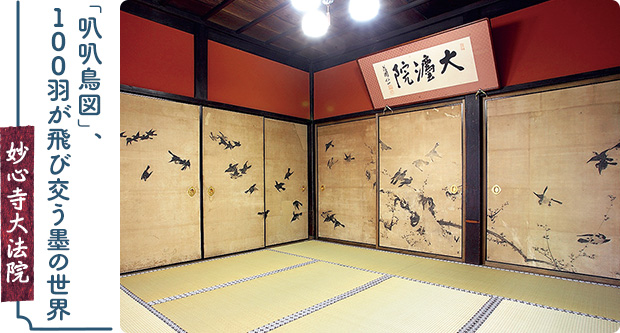 「叭叭鳥図」、
100羽が飛び交う墨の世界
妙心寺大法院
大灋院